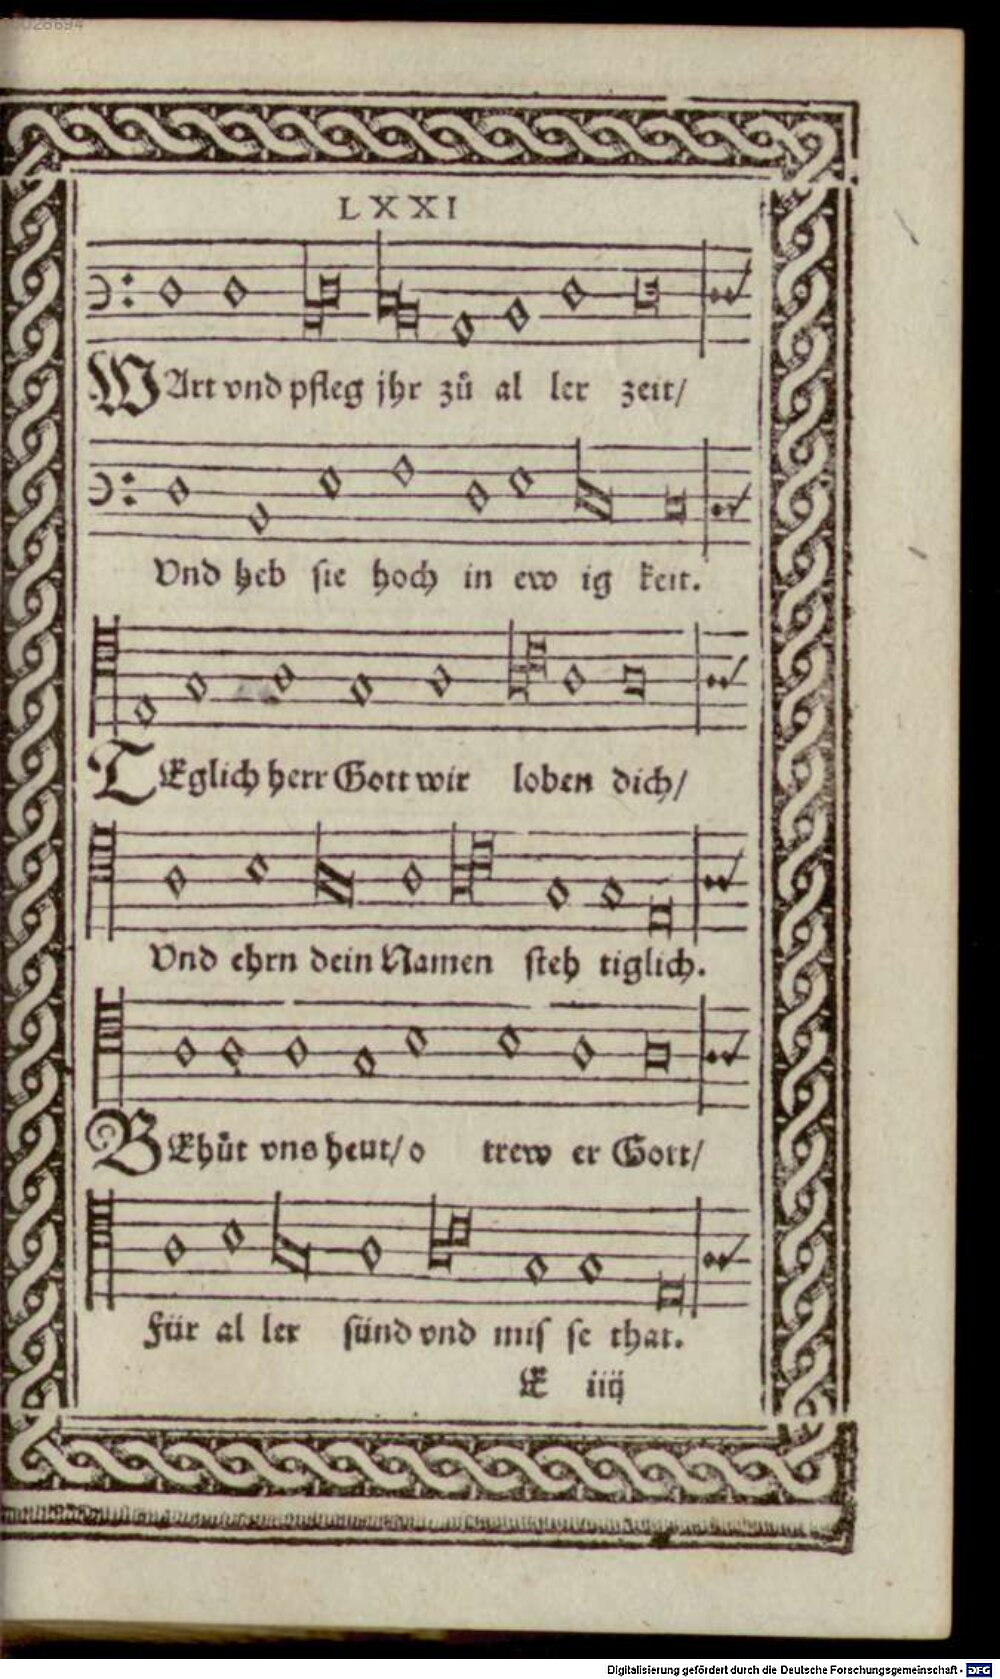 LXXI
WArt vnd pfleg jhr zů al ler zeit/
Vnd heb sie hoch in ew ig keit.
TEglich herr Gott wir loben dich/
Vnd ehrn dein Namen steh tiglich.
BEhüt vns heut/ o trew er Gott/
Für al ler sünd vnd mis se that.
E iiij
Digitalisierung gefördert durch die Deutsche Forschungsgemeinschaft - DFG